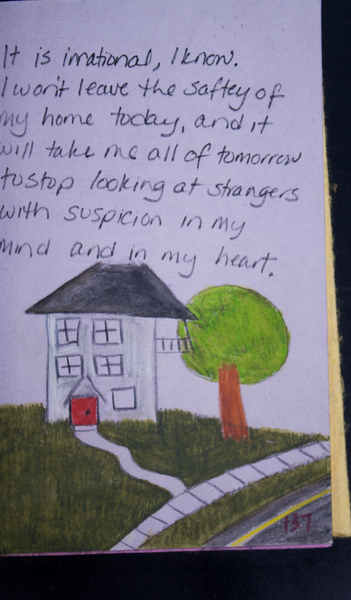 It is irrational, I know.
I won't leave the saftey of
my home today, and it
will take me all of tomorrow
to stop looking at strangers
with suspicion in my
mind and in my heart.
137